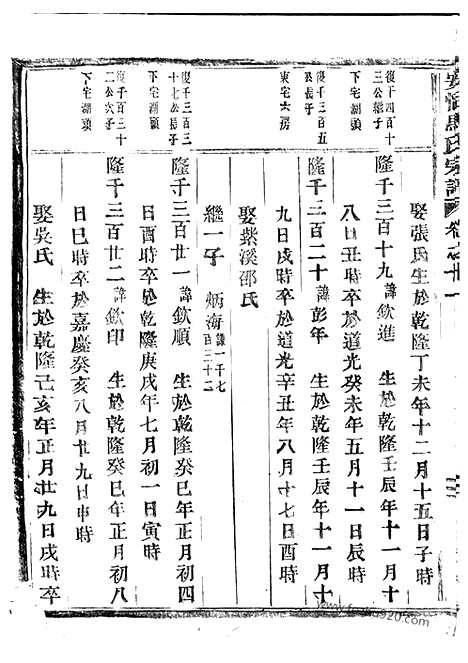 馬氏宗譜 卷之廿一
娶張氏生於乾隆丁未年十二月十五日子時
復千四百十三公繼子
下宅湖頭
隆千三百十九諱欽進 生於乾隆壬辰年十一月十
八日丑時卒於道光癸未年五月十一日辰時
復千三百五
公長子
東宅六房
隆千三百二十諱彭年 生於乾隆壬辰年十一月十
九日戌時卒於道光辛丑年八月十七日酉時
娶紫溪邵氏
繼一子 炳海謙一千七百三十二
復千三百三十七公長子
下宅湖頭
隆千三百廿一諱欽順 生於乾隆癸巳年正月初四
日酉時卒於乾隆庚戌年七月初一日寅時
復千三百三十二公次子
下宅湖頭
隆千三百廿二諱欽印 生於乾隆癸巳年正月初八
日巳時卒於嘉慶癸亥八月廿九日申時
娶吳氏 生於乾隆己亥年正月廿九日戌時卒